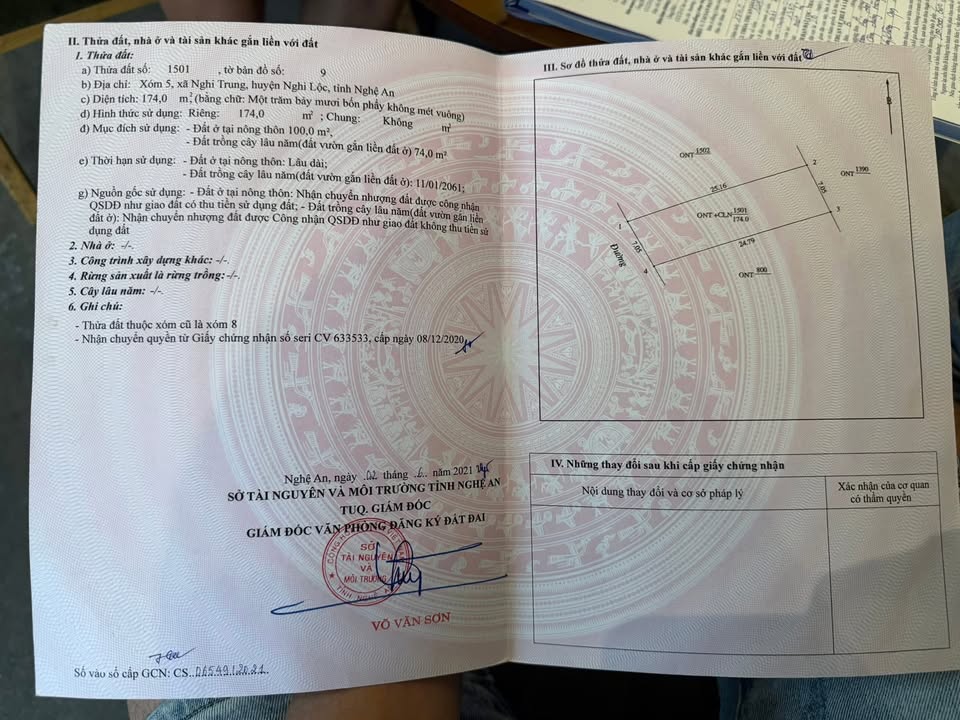 II. Thửa đất, nhà ở và tài sản khác gắn liền với đất
1. Thửa đất:
a) Thửa đất số: 1501 , tờ bản đồ số: 9
b) Địa chỉ: Xóm 5, xã Nghi Trung, huyện Nghi Lộc, tỉnh Nghệ An
c) Diện tích: 174,0 m², (bằng chữ: Một trăm bảy mươi bốn phẩy không mét vuông)
d) Hình thức sử dụng: Riêng: 174,0 m² ; Chung: Không m²
đ) Mục đích sử dụng: - Đất ở tại nông thôn 100,0 m²,
- Đất trồng cây lâu năm(đất vườn gắn liền đất ở) 74,0 m²
e) Thời hạn sử dụng: - Đất ở tại nông thôn: Lâu dài;
- Đất trồng cây lâu năm(đất vườn gắn liền đất ở): 11/01/2061;
g) Nguồn gốc sử dụng: - Đất ở tại nông thôn: Nhận chuyển nhượng đất được công nhận
QSDĐ như giao đất có thu tiền sử dụng đất; - Đất trồng cây lâu năm(đất vườn gắn liền
đất ở): Nhận chuyển nhượng đất được Công nhận QSDĐ như giao đất không thu tiền sử
dụng đất
2. Nhà ở: -/-.
3. Công trình xây dựng khác: -/-.
4. Rừng sản xuất là rừng trồng:-/-.
5. Cây lâu năm: -/-.
6. Ghi chú:
- Thửa đất thuộc xóm cũ là xóm 8
- Nhận chuyển quyền từ Giấy chứng nhận số seri CV 633533, cấp ngày 08/12/2020
Nghệ An, ngày .02 tháng .6.. năm 2021
SỞ TÀI NGUYÊN VÀ MÔI TRƯỜNG TỈNH NGHỆ AN
TUQ. GIÁM ĐỐC
GIÁM ĐỐC VĂN PHÒNG ĐĂNG KÝ ĐẤT ĐAI
SỞ
TÀI NGUYÊN
VÀ
MÔI TRƯỜNG
TỈNH NGHỆ AN
VÕ VĂN SƠN
Số vào sổ cấp GCN: CS..06549/2021.
III. Sơ đồ thửa đất, nhà ở và tài sản khác gắn liền với đất
B
ONT 1502
2
ONT 1390
25.16
7.05
ONT+CLN 1501
174.0
3
1
Đường
7.05
24.79
4
ONT 800
IV. Những thay đổi sau khi cấp giấy chứng nhận
Nội dung thay đổi và cơ sở pháp lý
Xác nhận của cơ quan
có thẩm quyền